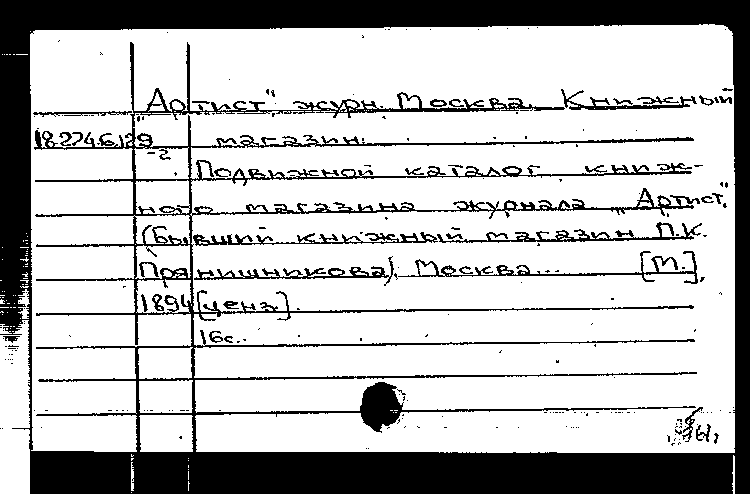 „Артист", журн. Москва. Книжный
18.274.6.129 магазин.
-2
Подвижной каталог книж-
ного магазина журнала „Артист".
(Бывший книжный магазин П.К.
Прянишникова). Москва... [М.],
1894 [ценз].
16с.